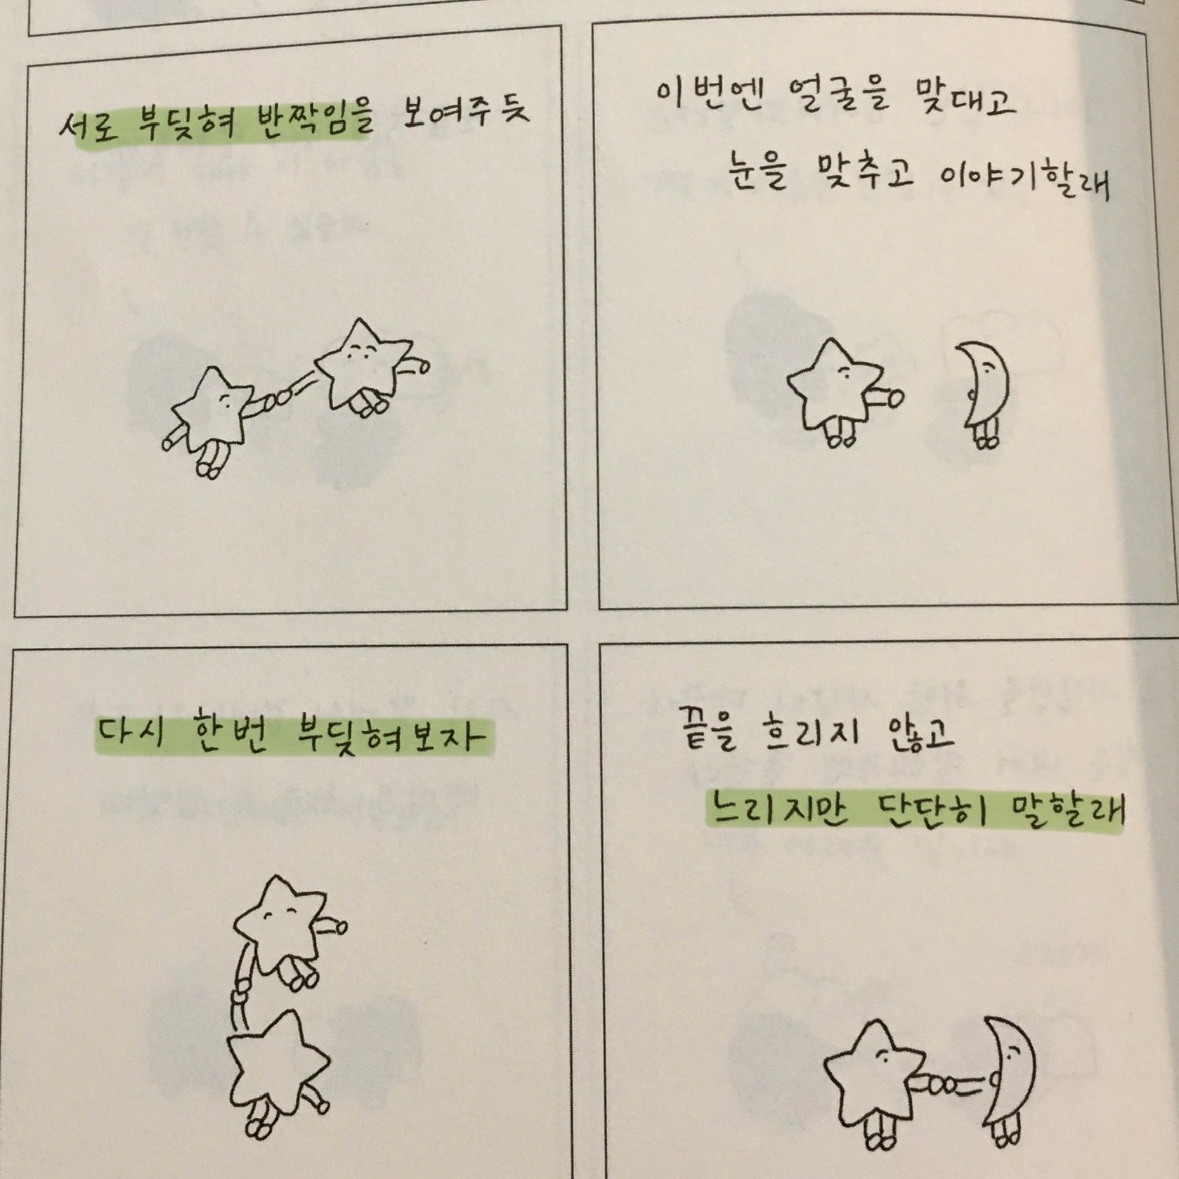 서로 부딪혀 반짝임을 보여주듯
이번엔 얼굴을 맞대고
눈을 맞추고 이야기할래
다시 한번 부딪혀보자
끝을 흐리지 않고
느리지만 단단히 말할래